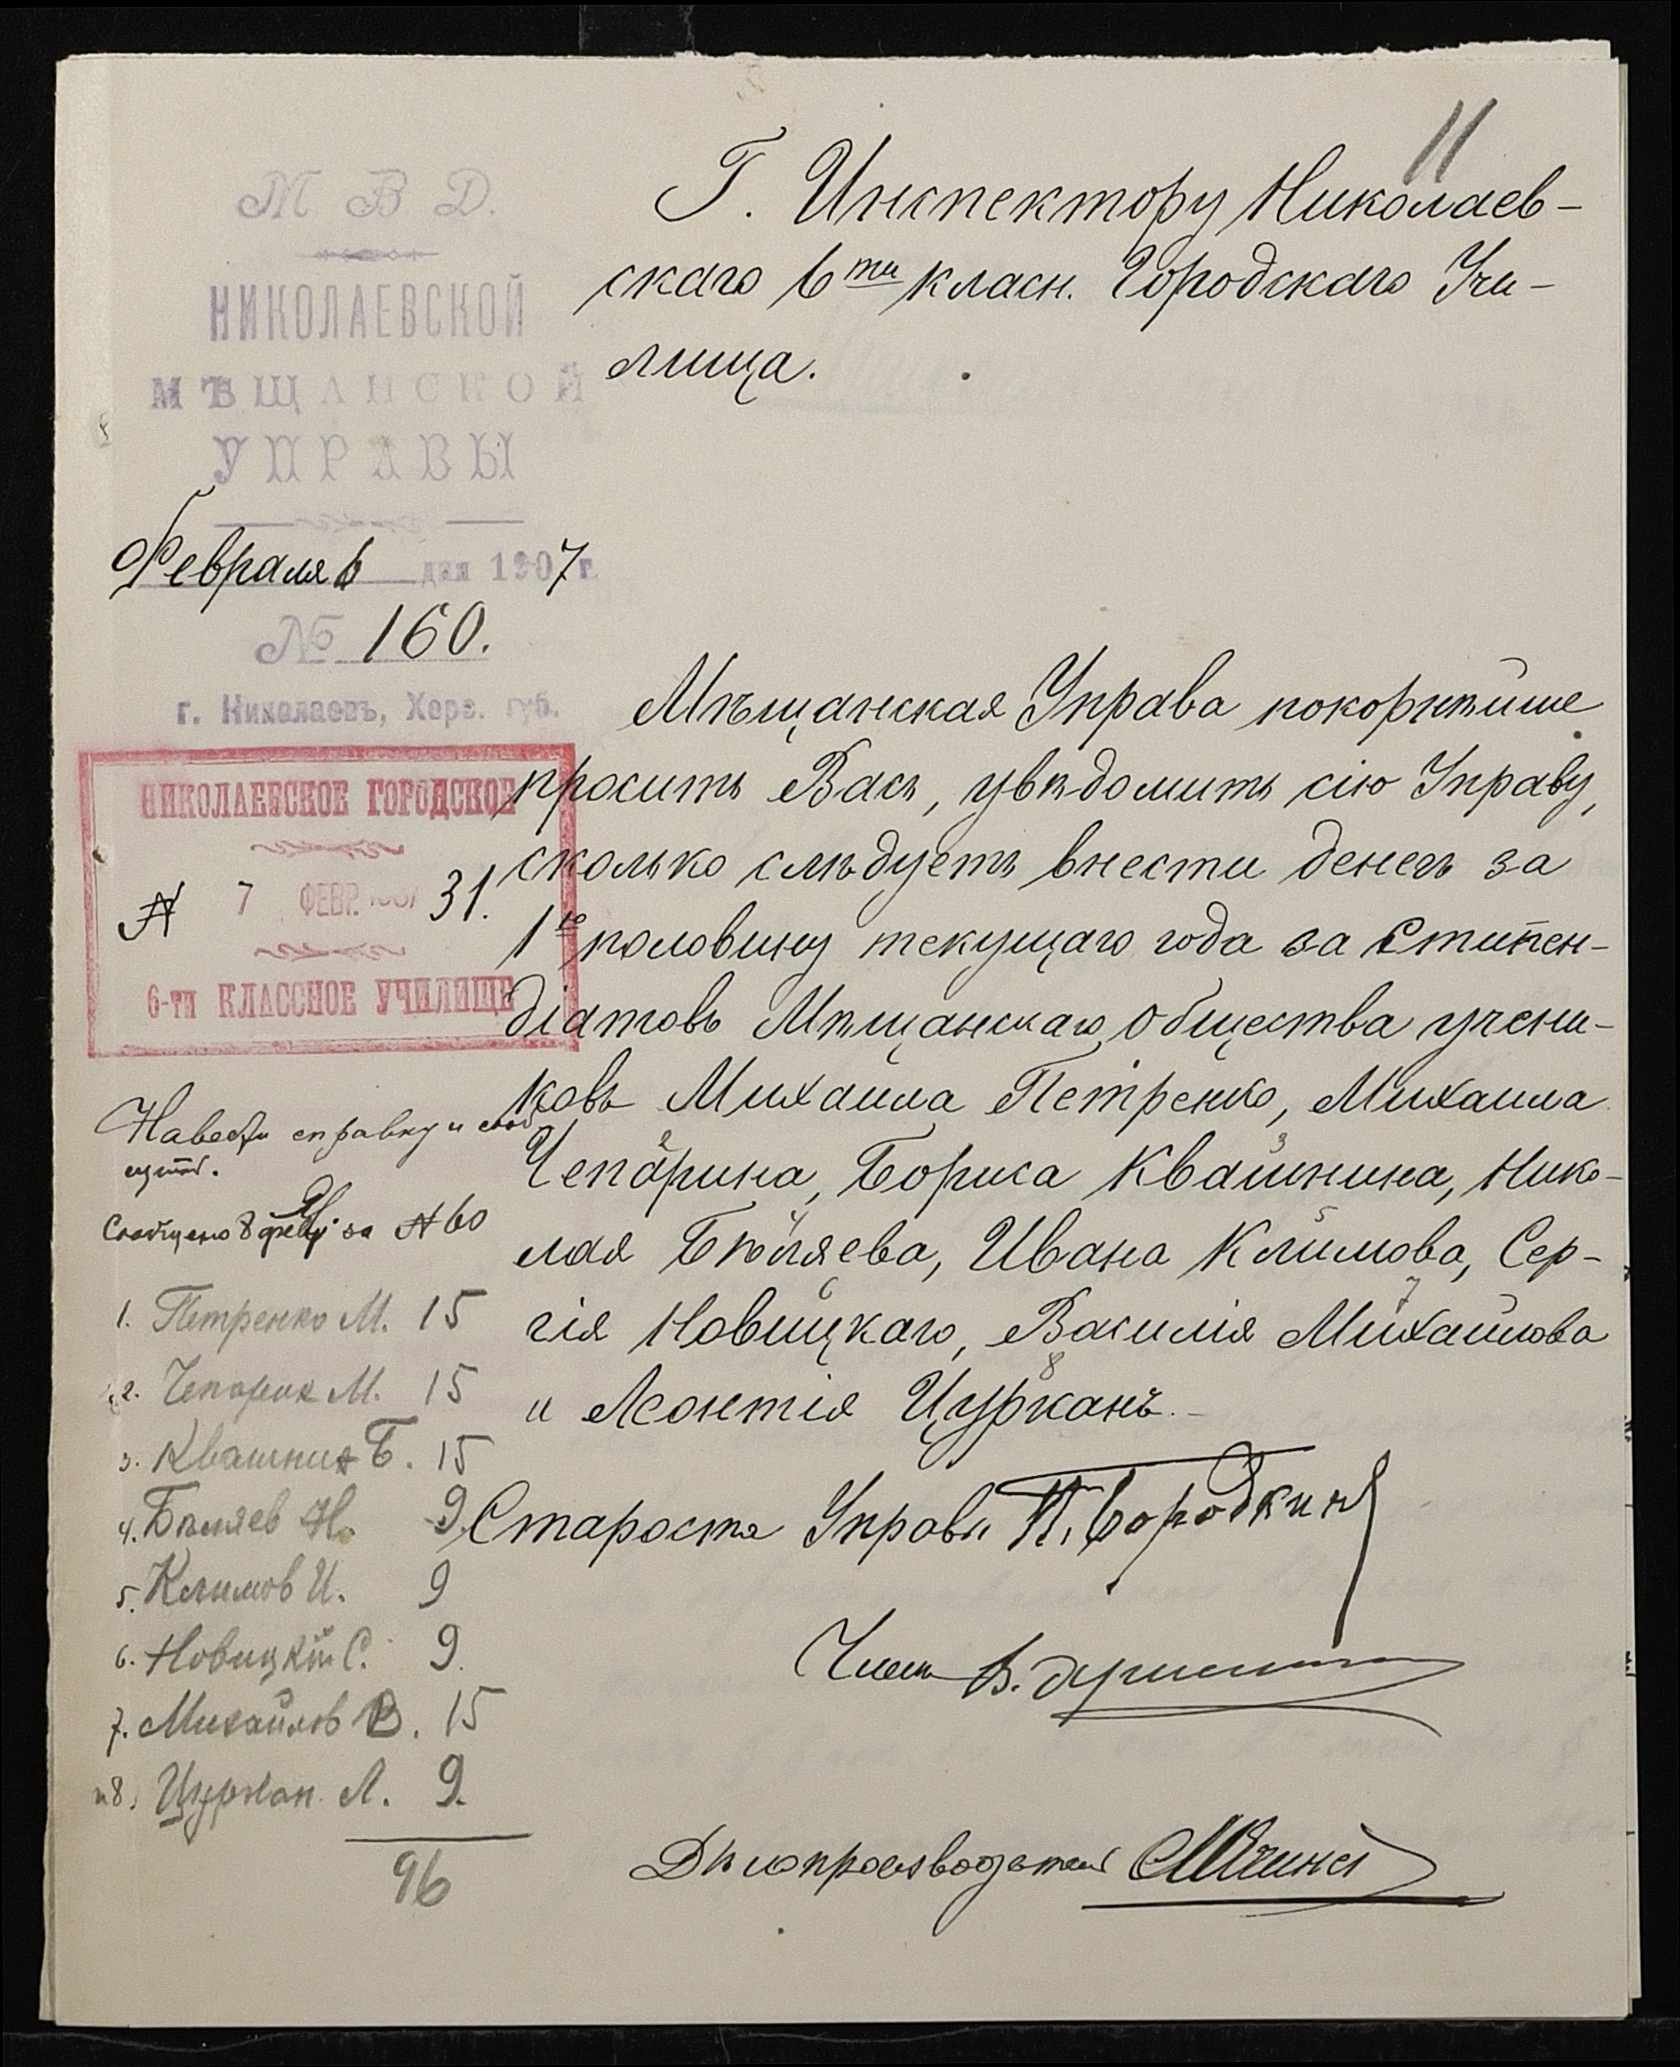 11
М. В. Д.
НИКОЛАЕВСКОЙ
МѢЩАНСКОЙ
УПРАВЫ
Февраля 6 дня 1907 г.
№ 160.
г. Николаевъ, Херс. губ.
Г. Инспектору Николаев-
скаго 6ти класн. Городскаго Учи-
лища.
НИКОЛАЕВСКОЕ ГОРОДСКОЕ
№ 7 ФЕВР. 1907 31.
6-ти КЛАССНОЕ УЧИЛИЩЕ
Мѣщанская Управа покорнѣйше
проситъ Васъ, увѣдомить сію Управу,
сколько слѣдуетъ внести денегъ за
1ю половину текущаго года за Стипен-
діатовъ Мѣщанскаго Общества учени-
ковъ Михаила Петренко, Михаила
2 3
Чепарина, Бориса Квашнина, Нико-
4 5
лая Бѣляева, Ивана Климова, Сер-
6 7
гія Новицкаго, Василія Михайлова
8
и Леонтія Цурканъ.
Староста Управы П. Бородкинъ
Членъ В.
Дѣлопроизводитель
Навести справку и сооб
щить.
Сообщено 8 февр. за № 60
1. Петренко М. 15
2. Чепарин М. 15
3. Квашнин Б. 15
4. Бѣляев Н. 9.
5. Климов И. 9
6. Новицкій С. 9.
7. Михайлов В. 15
и 8. Цуркан Л. 9.
96